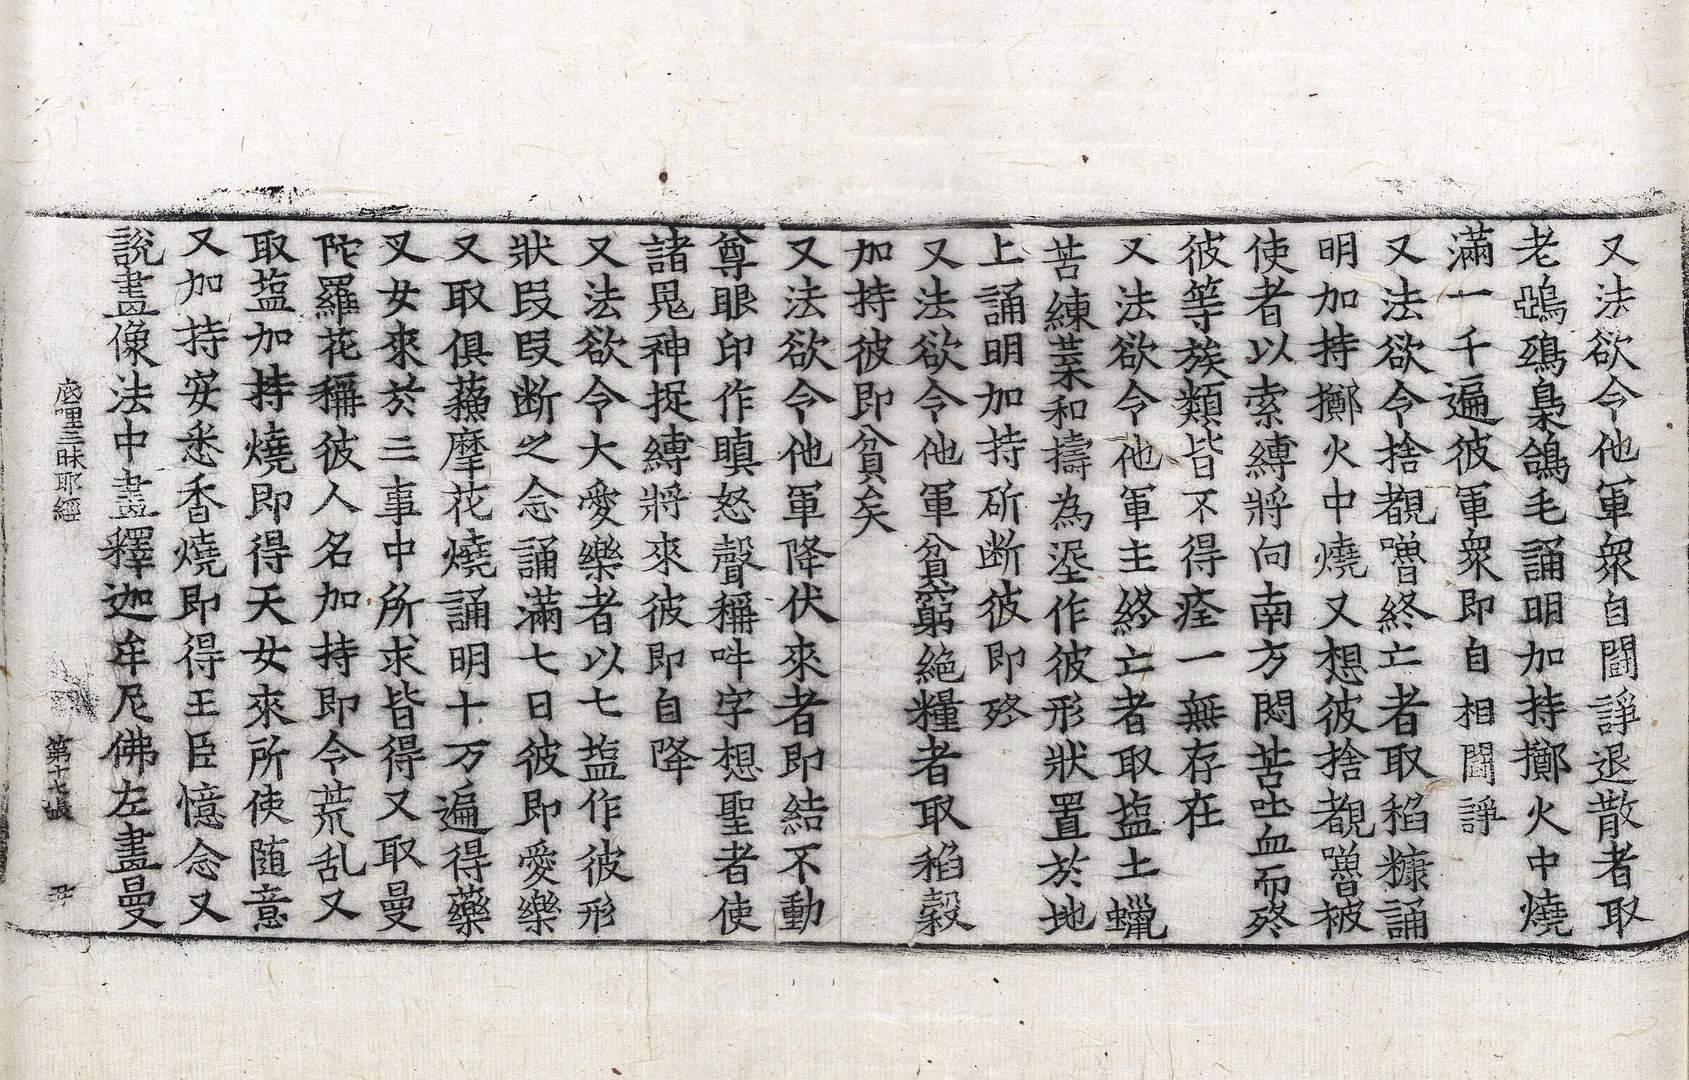 又法欲令他軍衆自闘諍退散者取
老鵄鵶梟鴿毛誦明加持擲火中燒
滿一千遍彼軍衆即自相闘諍
又法欲令捨覩嚕終亡者取稻糠誦
明加持擲火中燒又想彼捨覩嚕被
使者以索縛將向南方悶苦吐血而終
彼等族類皆不得痊一無存在
又法欲令他軍主終亡者取塩土蠟
苦練葉和擣為埿作彼形狀置於地
上誦明加持斫断彼即終
又法欲令他軍貧窮絕糧者取稻穀
加持彼即貧矣
又法欲令他軍降伏來者即結不動
尊眼印作瞋怒聲稱吽字想聖者使
諸鬼神捉縛將來彼即自降
又法欲令大愛樂者以七塩作彼形
狀段段断之念誦滿七日彼即愛樂
又取俱蘓摩花燒誦明十万遍得藥
叉女來於三事中所求皆得又取曼
陀羅花稱彼人名加持即令荒乱又
取塩加持燒即得天女來所使随意
又加持安悉香燒即得王臣憶念又
說畫像法中畫釋迦牟尼佛左畫曼
底哩三昧耶經 第十七張